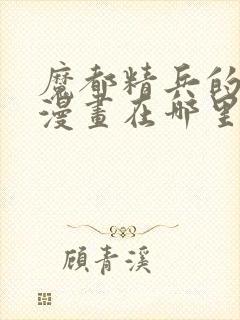 魔都精兵的
漫畫在哪里
顧青溪